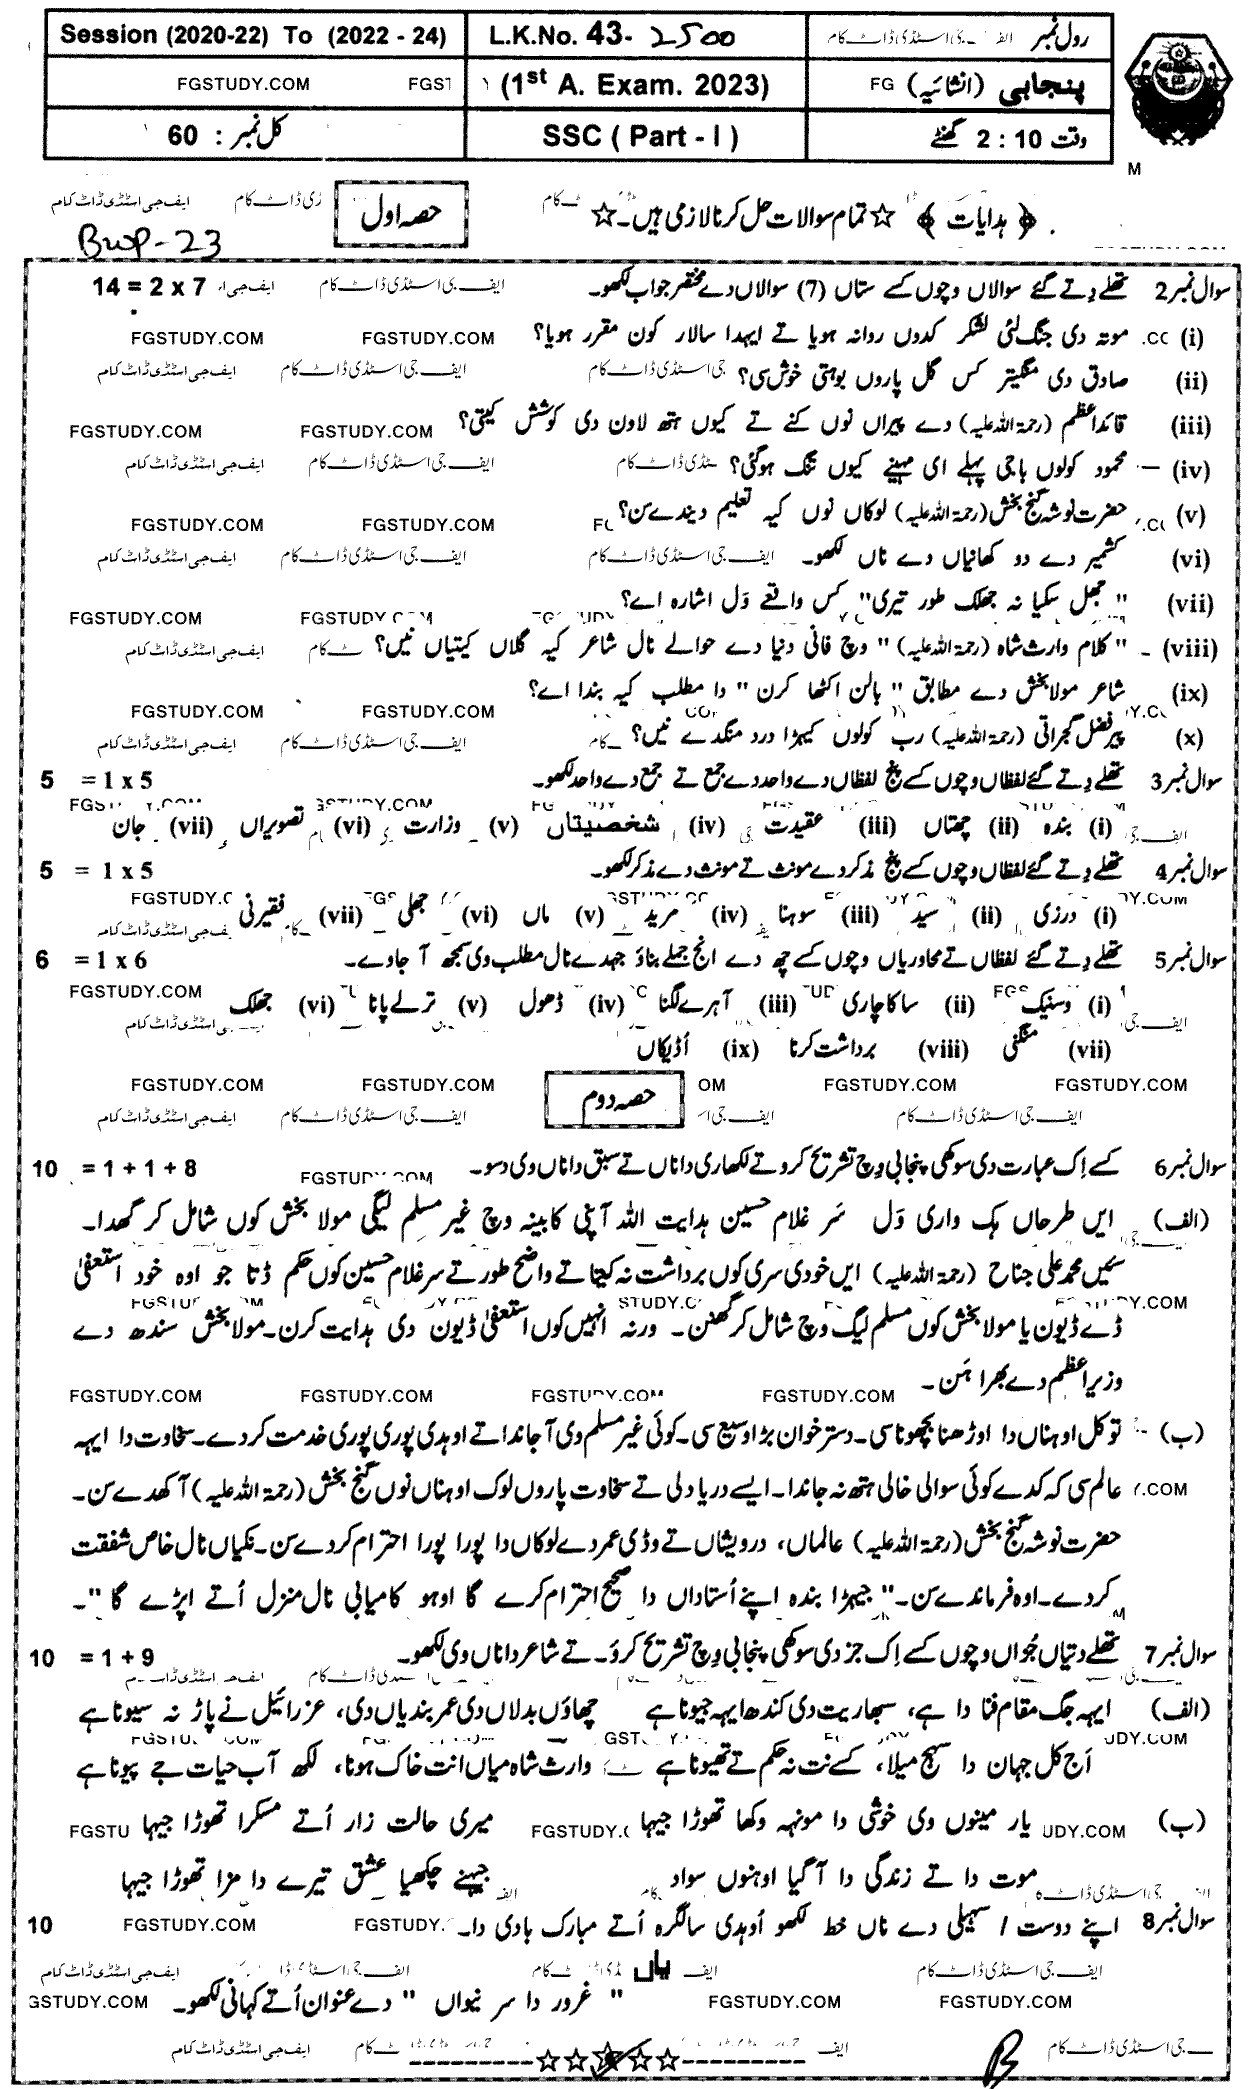 Session (2020-22) To (2022 - 24) L.K.No. 43- 2500 رول نمبر
FGSTUDY.COM (1st A. Exam. 2023) پنجابی (انشائیہ)
کل نمبر : 60 SSC ( Part - I ) وقت 2 : 10 گھنٹے
﴿ ہدایات ﴾ ☆ تمام سوالات حل کرنا لازمی ہیں۔ ☆ حصہ اول
BWP-23
سوال نمبر 2 تھلے دتے گئے سوالاں وچوں کسے ستاں (7) سوالاں دے مختصر جواب لکھو۔ 14 = 2 x 7
(i) موتہ دی جنگ لئی لشکر کدوں روانہ ہویا تے ایہدا سالار کون مقرر ہویا؟
(ii) صادق دی منگیتر کس گل پاروں بوہتی خوش سی؟
(iii) قائداعظم (رحمۃ اللہ علیہ) دے پیراں نوں کنے تے کیوں ہتھ لاون دی کوشش کیتی؟
(iv) محمود کولوں باجی پہلے ای مہینے کیوں تنگ ہوگئی؟
(v) حضرت نوشہ گنج بخش (رحمۃ اللہ علیہ) لوکاں نوں کیہ تعلیم دیندے سن؟
(vi) کشمیر دے دو کھانیاں دے ناں لکھو۔
(vii) "جھل سکیا نہ جھلک طور تیری" کس واقعے وَل اشارہ اے؟
(viii) "کلام وارث شاہ (رحمۃ اللہ علیہ)" وچ فانی دنیا دے حوالے نال شاعر کیہ گلاں کیتیاں نیں؟
(ix) شاعر مولا بخش دے مطابق "بالن اکٹھا کرن" دا مطلب کیہ بندا اے؟
(x) پیر فضل گجراتی (رحمۃ اللہ علیہ) رب کولوں کیہڑا درد منگدے نیں؟
سوال نمبر 3 تھلے دتے گئے لفظاں وچوں کسے پنج لفظاں دے واحد دے جمع تے جمع دے واحد لکھو۔ 5 = 1 x 5
(i) بندہ (ii) چھتاں (iii) عقیدت (iv) شخصیتاں (v) وزارت (vi) تصویراں (vii) جان
سوال نمبر 4 تھلے دتے گئے لفظاں وچوں کسے پنج مذکر دے مونث تے مونث دے مذکر لکھو۔ 5 = 1 x 5
(i) درزی (ii) سید (iii) سوہنا (iv) مرید (v) ماں (vi) جھلی (vii) فقیرنی
سوال نمبر 5 تھلے دتے گئے لفظاں تے محاوریاں وچوں کسے چھ دے انج جملے بناؤ جہدے نال مطلب وی سمجھ آ جاوے۔ 6 = 1 x 6
(i) وسنیک (ii) ساکاچاری (iii) آہرے لگنا (iv) ڈھول (v) ترلے پانا (vi) جھلک
(vii) منگنی (viii) برداشت کرنا (ix) اُڈیکاں
حصہ دوم
سوال نمبر 6 کسے اِک عبارت دی سوکھی پنجابی وچ تشریح کرو تے لکھاری دا ناں تے سبق دا ناں وی دسو۔ 10 = 1 + 1 + 8
(الف) ایں طرحاں ہک واری وَل سَر غلام حسین ہدایت اللہ آپنی کابینہ وچ غیر مسلم لیگی مولا بخش کوں شامل کر گھدا۔
سَئیں محمد علی جناح (رحمۃ اللہ علیہ) ایں خودی سری کوں برداشت نہ کیتا تے واضح طور تے سر غلام حسین کوں حکم ڈتا جو اوہ خود استعفیٰ
ڈے ڈیون یا مولا بخش کوں مسلم لیگ وچ شامل کر گھنن۔ ورنہ انہیں کوں استعفیٰ ڈیون دی ہدایت کرن۔ مولا بخش سندھ دے
وزیراعظم دے بھرا ہَن۔
(ب) توکل اوہناں دا اوڑھنا بچھونا سی۔ دسترخوان بڑا وسیع سی۔ کوئی غیر مسلم وی آ جاندا تے اوہدی پوری پوری خدمت کردے۔ سخاوت دا ایہہ
عالم سی کہ کدے کوئی سوالی خالی ہتھ نہ جاندا۔ ایسے دریا دلی تے سخاوت پاروں لوک اوہناں نوں گنج بخش (رحمۃ اللہ علیہ) آکھدے سن۔
حضرت نوشہ گنج بخش (رحمۃ اللہ علیہ) عالماں، درویشاں تے وڈی عمر دے لوکاں دا پورا پورا احترام کردے سن۔ نکیاں نال خاص شفقت
کردے۔ اوہ فرماندے سن۔ "جیہڑا بندہ اپنے اُستاداں دا صحیح احترام کرے گا اوہو کامیابی نال منزل اُتے اپڑے گا"۔
سوال نمبر 7 تھلے دتیاں جُزاں وچوں کسے اِک جز دی سوکھی پنجابی وچ تشریح کرو۔ تے شاعر دا ناں وی لکھو۔ 10 = 1 + 9
(الف) ایہہ جگ مقام فنا دا ہے، سبھا ریت دی کندھ ایہہ جیونا ہے چھاؤں بدلاں دی عمر بندیاں دی، عزرائیل نے پاڑ نہ سیونا ہے
اَج کل جہان دا سہج میلا، کسے نت نہ حکم تے تھیونا ہے وارث شاہ میاں انت خاک ہونا، لکھ آب حیات جے پیونا ہے
(ب) یار مینوں وی خوشی دا مونہہ وکھا تھوڑا جیہا میری حالت زار اُتے مسکرا تھوڑا جیہا
موت دا تے زندگی دا آ گیا اوہنوں سواد جیہنے چکھیا عشق تیرے دا مزا تھوڑا جیہا
سوال نمبر 8 اپنے دوست / سہیلی دے ناں خط لکھو اُوہدی سالگرہ اُتے مبارک بادی دا۔ 10
یاں
"غرور دا سر نیواں" دے عنوان اُتے کہانی لکھو۔
☆☆☆☆☆